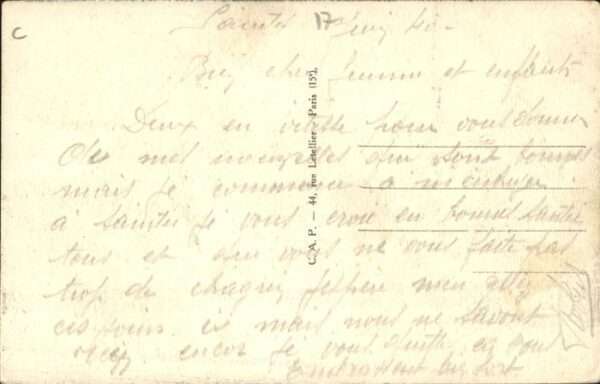 C
Saintes 17 Juin 40 -
Bien cher femme et enfants
Deux en vitesse pour vous donner
de mes nouvelles qui sont bonnes
mais je commence a m'ennuyer
à Saintes je vous croie en bonne santé
tous et que vous ne vous faite pas
trop de chagrin j'espère
ces jours ci mais nous ne savont
rien encor je vous quitte en vous
Embrassant bien fort
C. A. P. — 44, rue Letellier - Paris (15e).